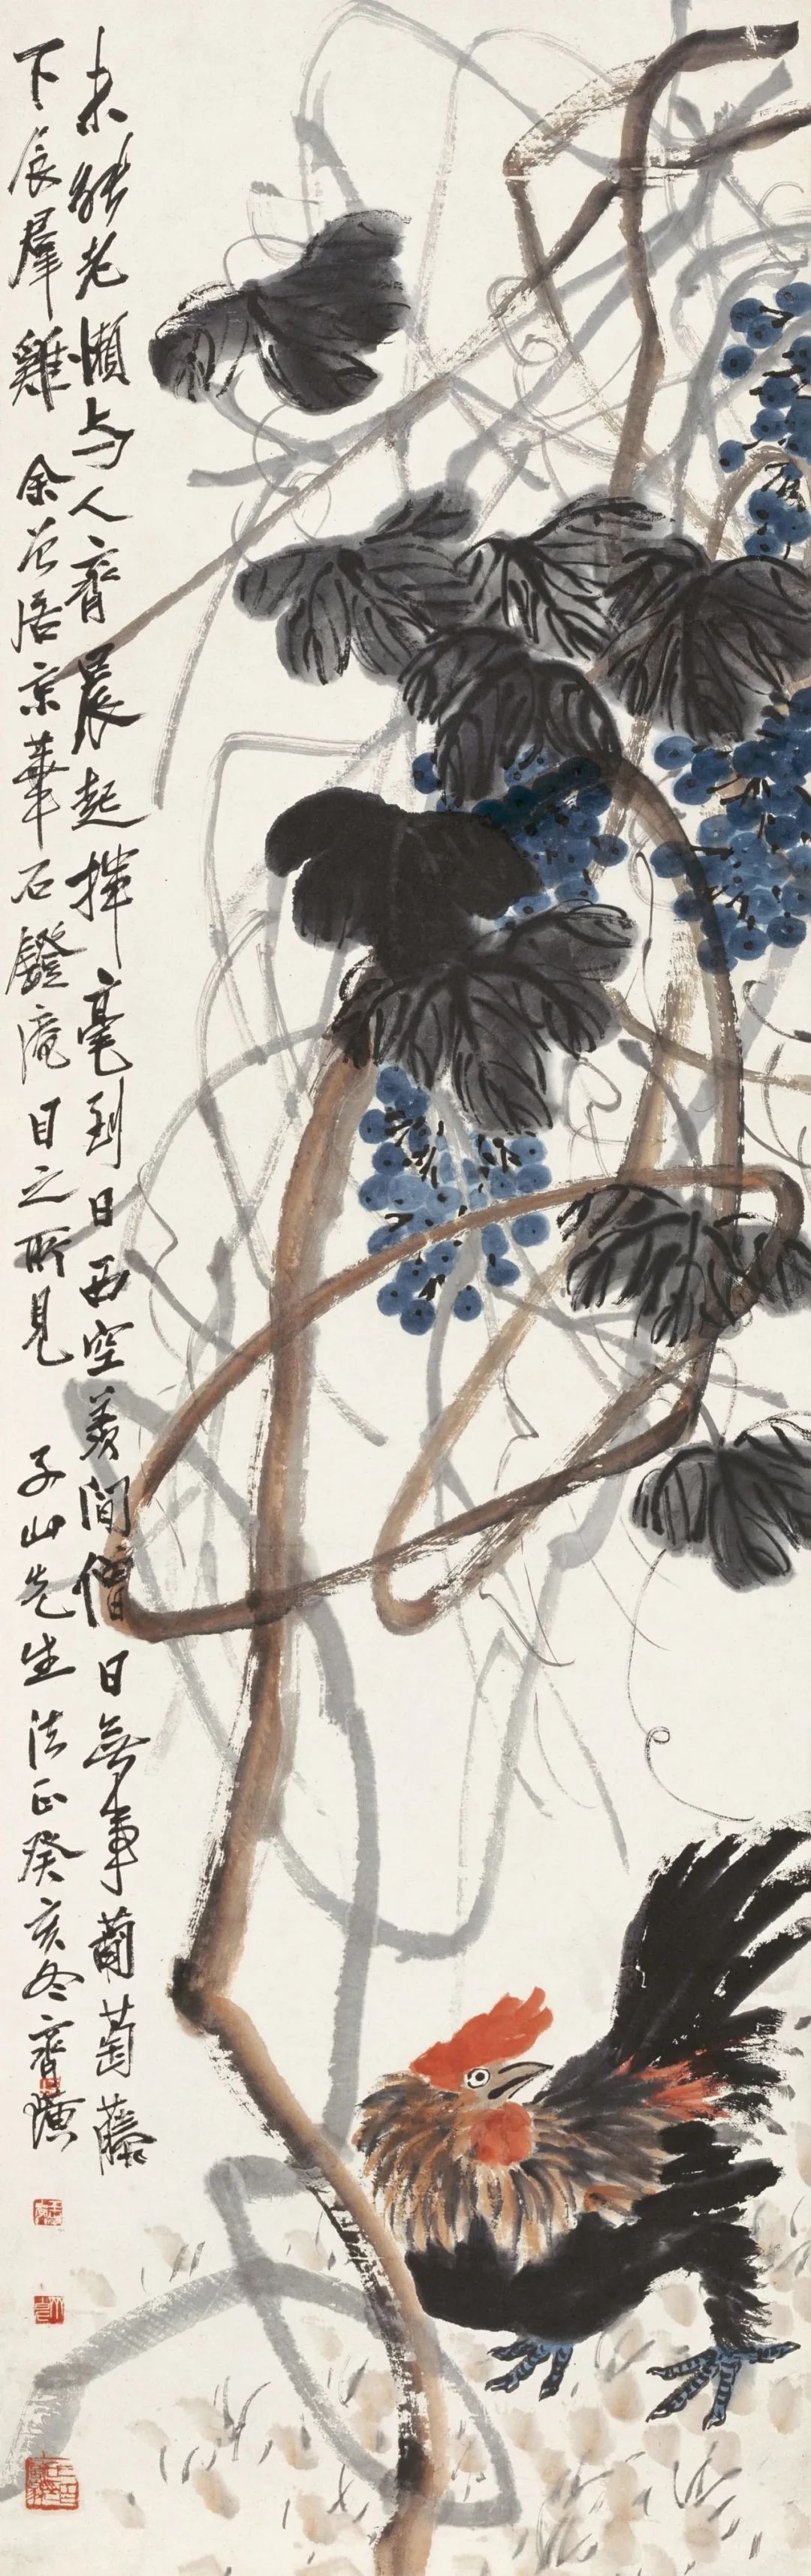 未能老懶与人齊晨起揮毫到日西空羨閒僧日無事葡萄藤
下辰群雞余昔居京華石鐙庵目之所見子山先生法正癸亥冬齊璜